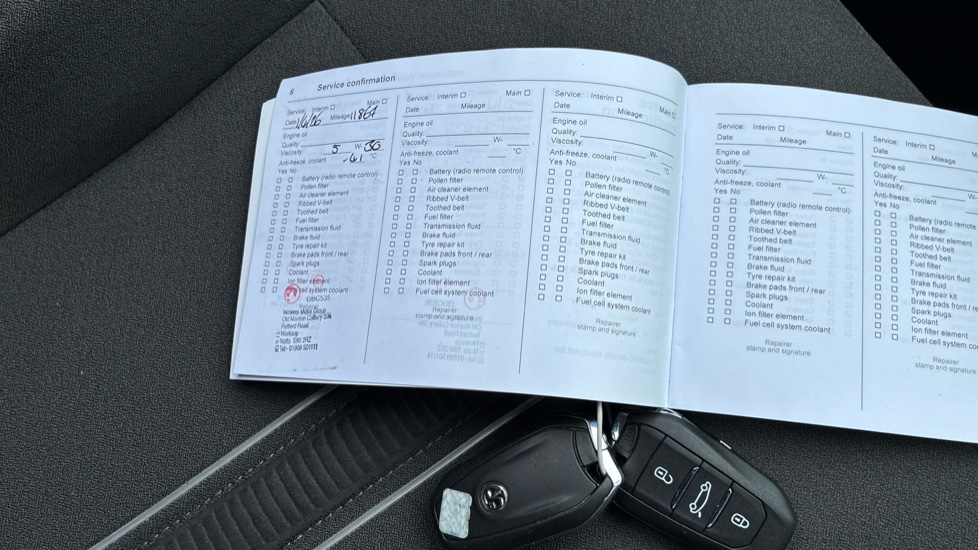 6 Service confirmation
Service: Interim ☐ Main ☐
Date Mileage 11867
Engine oil
Quality:
Viscosity: 5 W- 30
Anti-freeze, coolant -41 °C
Yes No
☐ ☐ Battery (radio remote control)
☐ ☐ Pollen filter
☐ ☐ Air cleaner element
☐ ☐ Ribbed V-belt
☐ ☐ Toothed belt
☐ ☐ Fuel filter
☐ ☐ Transmission fluid
☐ ☐ Brake fluid
☐ ☐ Tyre repair kit
☐ ☐ Brake pads front / rear
☐ ☐ Spark plugs
☐ ☐ Coolant
☐ ☐ Ion filter element
☐ ☐ cell system coolant
GBC535
Motor Group
Old Manton Colliery Site
Retford Road
Worksop
Notts S80 2RZ
Tel - 01909 501111
Service: Interim ☐ Main ☐
Date Mileage
Engine oil
Quality:
Viscosity: W-
Anti-freeze, coolant °C
Yes No
☐ ☐ Battery (radio remote control)
☐ ☐ Pollen filter
☐ ☐ Air cleaner element
☐ ☐ Ribbed V-belt
☐ ☐ Toothed belt
☐ ☐ Fuel filter
☐ ☐ Transmission fluid
☐ ☐ Brake fluid
☐ ☐ Tyre repair kit
☐ ☐ Brake pads front / rear
☐ ☐ Spark plugs
☐ ☐ Coolant
☐ ☐ Ion filter element
☐ ☐ Fuel cell system coolant
Repairer
stamp and signature
Service: Interim ☐ Main ☐
Date Mileage
Engine oil
Quality:
Viscosity: W-
Anti-freeze, coolant °C
Yes No
☐ ☐ Battery (radio remote control)
☐ ☐ Pollen filter
☐ ☐ Air cleaner element
☐ ☐ Ribbed V-belt
☐ ☐ Toothed belt
☐ ☐ Fuel filter
☐ ☐ Transmission fluid
☐ ☐ Brake fluid
☐ ☐ Tyre repair kit
☐ ☐ Brake pads front / rear
☐ ☐ Spark plugs
☐ ☐ Coolant
☐ ☐ Ion filter element
☐ ☐ Fuel cell system coolant
Repairer
stamp and signature
Service: Interim ☐ Main ☐
Date Mileage
Engine oil
Quality:
Viscosity: W-
Anti-freeze, coolant °C
Yes No
☐ ☐ Battery (radio remote control)
☐ ☐ Pollen filter
☐ ☐ Air cleaner element
☐ ☐ Ribbed V-belt
☐ ☐ Toothed belt
☐ ☐ Fuel filter
☐ ☐ Transmission fluid
☐ ☐ Brake fluid
☐ ☐ Tyre repair kit
☐ ☐ Brake pads front / rear
☐ ☐ Spark plugs
☐ ☐ Coolant
☐ ☐ Ion filter element
☐ ☐ Fuel cell system coolant
Repairer
stamp and signature
Service: Interim ☐ M
Date Mileage
Engine oil
Quality:
Viscosity: W-
Anti-freeze, coolant
Yes No
☐ ☐ Battery (radio remote
☐ ☐ Pollen filter
☐ ☐ Air cleaner element
☐ ☐ Ribbed V-belt
☐ ☐ Toothed belt
☐ ☐ Fuel filter
☐ ☐ Transmission fluid
☐ ☐ Brake fluid
☐ ☐ Tyre repair kit
☐ ☐ Brake pads front / re
☐ ☐ Spark plugs
☐ ☐ Coolant
☐ ☐ Ion filter element
☐ ☐ Fuel cell system co
Repairer
stamp and signature